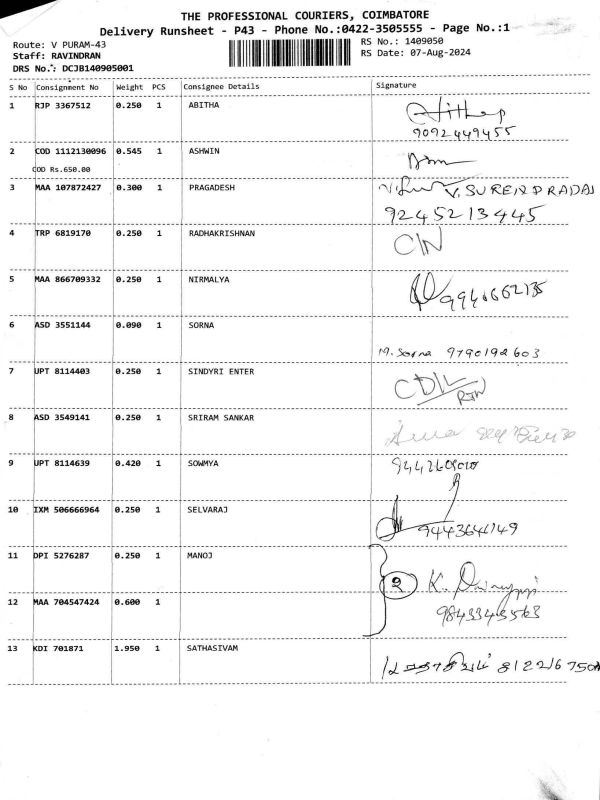 THE PROFESSIONAL COURIERS, COIMBATORE
Delivery Runsheet - P43 - Phone No.:0422-3505555 - Page No.:1
Route: V PURAM-43 RS No.: 1409050
Staff: RAVINDRAN RS Date: 07-Aug-2024
DRS No.: DCJB140905001
S No Consignment No Weight PCS Consignee Details Signature
1 RJP 3367512 0.250 1 ABITHA
9092449455
2 COD 1112130096 0.545 1 ASHWIN
COD Rs.650.00
3 MAA 107872427 0.300 1 PRAGADESH V.SURENDRADAS
9245213445
4 TRP 6819170 0.250 1 RADHAKRISHNAN C/N
5 MAA 866709332 0.250 1 NIRMALYA
6 ASD 3551144 0.090 1 SORNA
M. Sorna 9790192603
7 UPT 8114403 0.250 1 SINDYRI ENTER CD/L
RTN
8 ASD 3549141 0.250 1 SRIRAM SANKAR
9 UPT 8114639 0.420 1 SOWMYA
10 IXM 506666964 0.250 1 SELVARAJ
9443641149
11 DPI 5276287 0.250 1 MANOJ
2 K.
12 MAA 704547424 0.600 1
9843343563
13 KDI 701871 1.950 1 SATHASIVAM